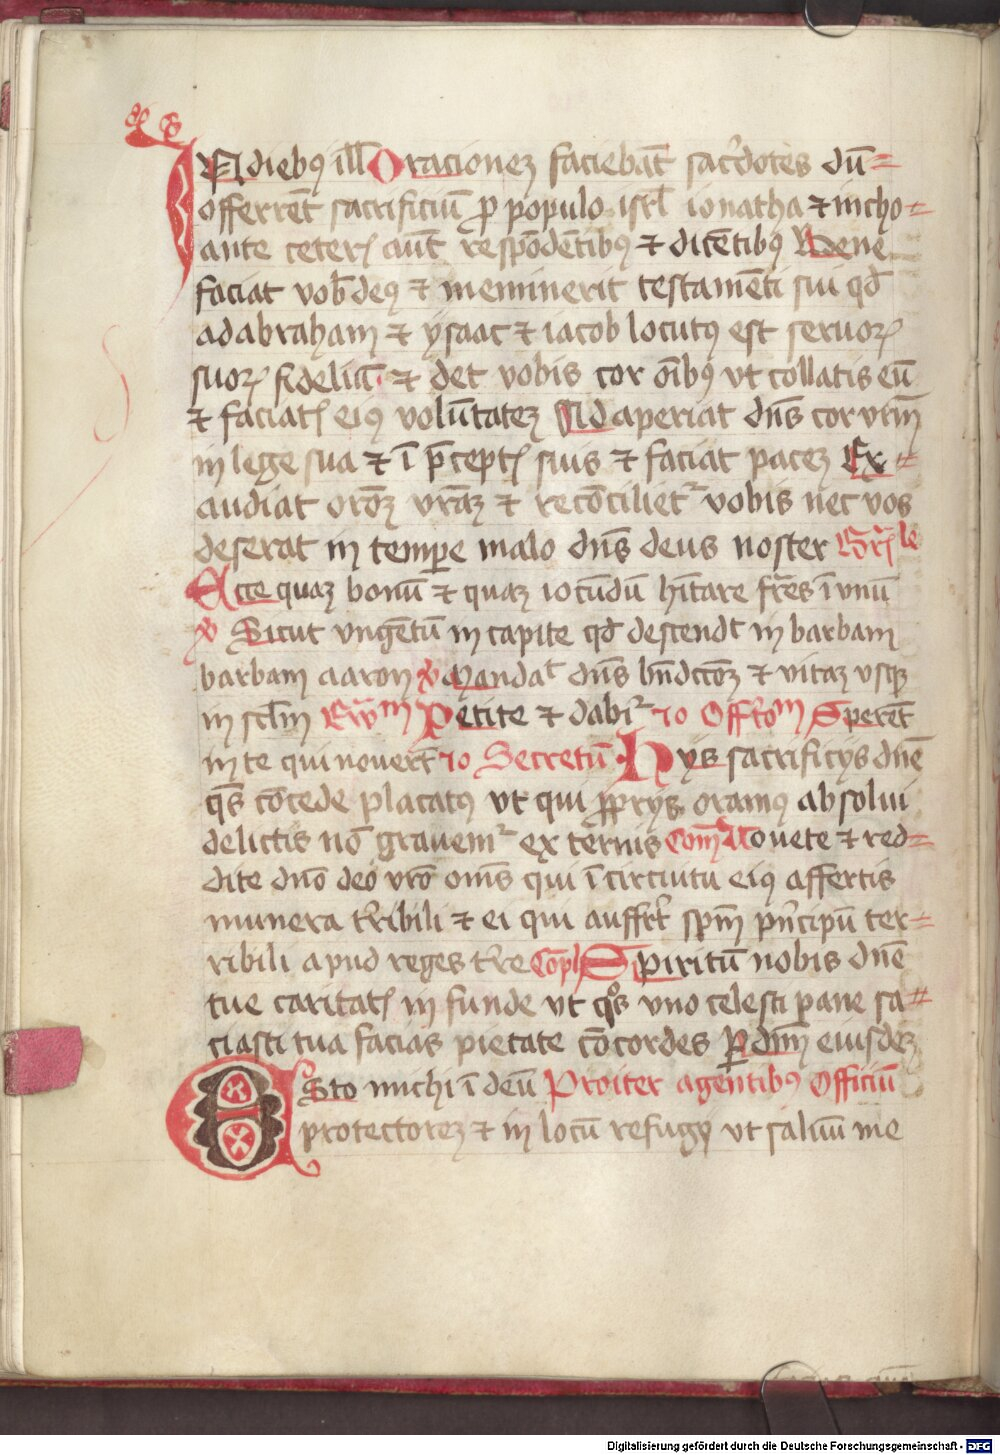 IN diebꝰ ill̄ Oracioneꝫ faciebāt sac̓dotes dū=
offerrēt sacrificiū ꝓ populo isrl̄ ionatha ⁊ incho=
ante ceteris aut̄ respōdētibꝰ ⁊ dicētibꝰ Bene
faciat vob̄ deꝰ ⁊ meminerit testamēti sui qd̄
ad abraham ⁊ ẏsaac ⁊ iacob locutꝰ est seruoꝝ
suoꝝ fideliū ⁊ det vobis cor oībꝰ vt collatis eū
⁊ faciatis eiꝰ volūtateꝫ Adaperiat dn̄s cor vrm̄
in lege sua ⁊ ī p̄ceptis suis ⁊ faciat paceꝫ Ex=
audiat or̄oēꝫ vrāꝫ ⁊ recōcilietᷣ vobis nec vos
deserat in tempore malo dn̄s deus noster Gr̄ale
Ecce quaꝫ bonū ⁊ quaꝫ iocūdū hītare frēs ī vnū
℣ Sicut vngētū in capite qd̄ descendt in barbam
barbam aaron ℣ Mandat dn̄s bn̄dctōꝫ ⁊ vitaꝫ vsqꝫ
in sclm̄ Ewᵐ Petite ⁊ dabiᷣ ⁊o Offrōm Sperēt
in te qui nouerūt ⁊o Secretū Hijs sacrificijs dnē
qs̄ cōcede placatꝰ vt qui ꝓprijs oramꝰ absolui
delictis nō grauemᷣ externis Com̄ Uouete ⁊ red=
dite dnō deo vrō om̄s qui ī circuitu eiꝰ affertis
munera tribili ⁊ ei qui auffrt sp̄m pn̓cipū ter=
ribili apud reges tr̄re Cōpl Spiritū nobis dnē
tue caritatis in funde vt qͦs vno celesti pane sa=
ciasti tua facias pietate cōcordes ꝑ dnm̄ eiusdeꝫ
Esto michi ī deū Pro iter agentibꝰ Officiū
protectoreꝫ ⁊ in locū refugij vt saluū me
Digitalisierung gefördert durch die Deutsche Forschungsgemeinschaft - DFG